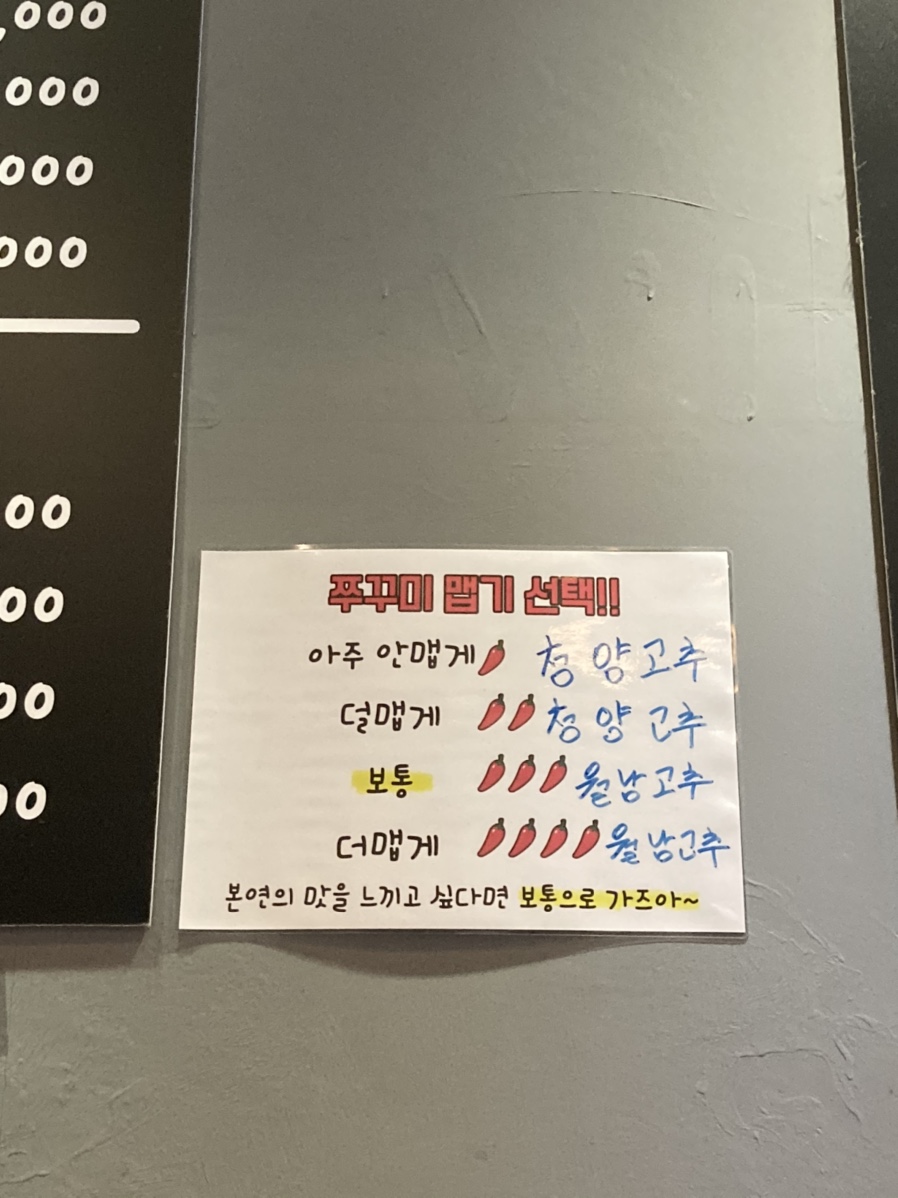 ,000
000
000
000
00
00
00
00
쭈꾸미 맵기 선택!!
아주 안맵게 청양고추
덜맵게 청양고추
보통 월남고추
더맵게 월남고추
본연의 맛을 느끼고 싶다면 보통으로 가즈아~